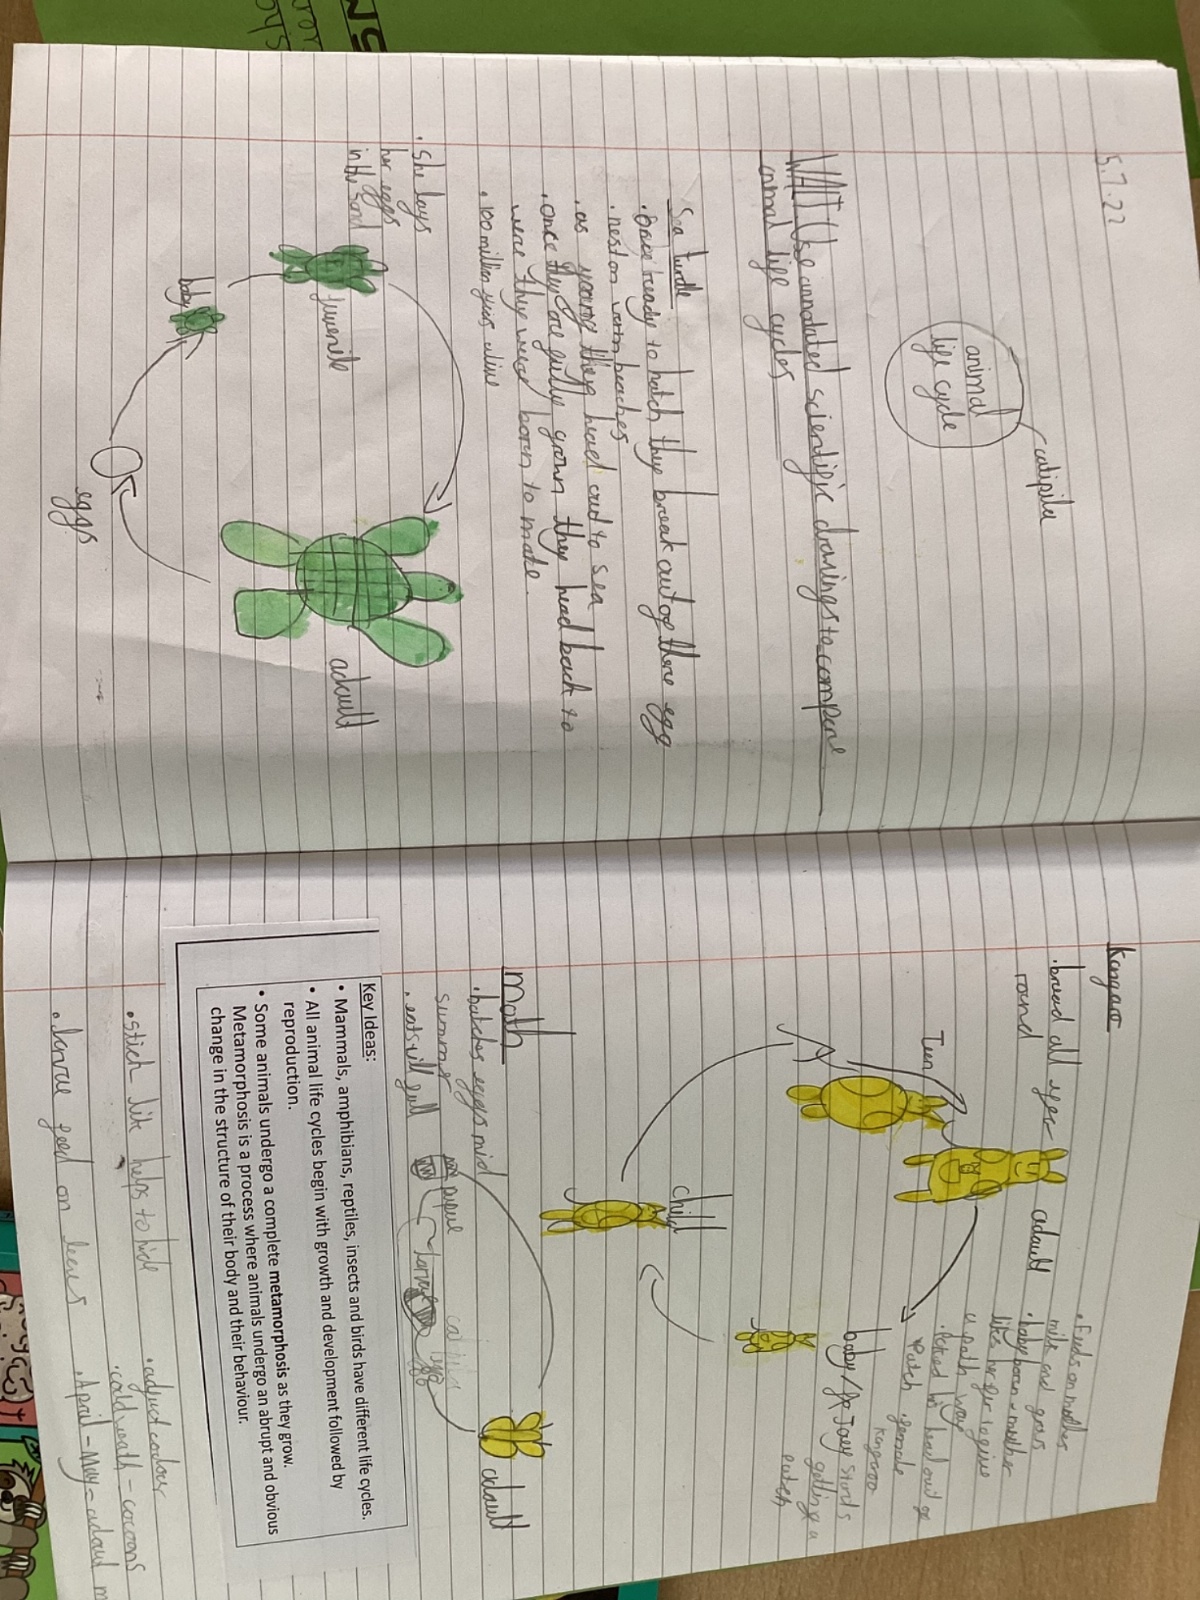 5.7.22
animal
life cycle
catipila
WALT: Use annotated scientific drawings to compare
animal life cycles
Sea turtle
• Once ready to hatch they break out of there egg
• nest on warm beaches
• as young they head out to sea
• once they are fully grown they head back to
were they were born to mate.
• 100 million years alive
• She lays
her eggs
in the sand
juvenile
baby
adault
eggs
Kangaroo
• bread all year
round
Teen
adault
• Feeds on mother
milk and grows
• baby born - mother
likes her fur to give
a path way
• head out of
Patch • female
baby / Joey
kangaroo
getting a
patch
child
Moth
• hatches eggs mid
summer
• eats
pupae
larvae
egg
adault
Key Ideas:
• Mammals, amphibians, reptiles, insects and birds have different life cycles.
• All animal life cycles begin with growth and development followed by
reproduction.
• Some animals undergo a complete metamorphosis as they grow.
Metamorphosis is a process where animals undergo an abrupt and obvious
change in the structure of their body and their behaviour.
• stick like helps to hide
• larvae feed on leaves
• adjust colour
• cold weath - cocoons
• April - May - adault m